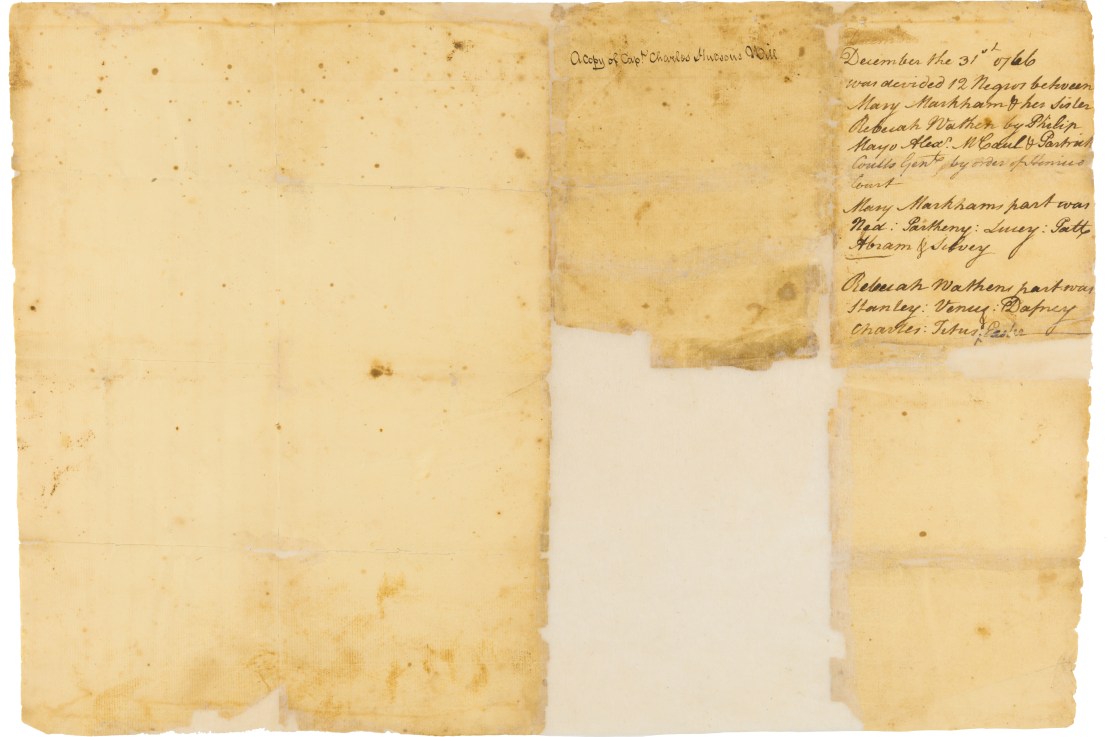 A Copy of Capt. Charles Hudsons Will
December the 31st 1766
was devided 12 Negros between
Mary Markham & her Sister
Rebecah Wathen by Philip
Mayo Alexr. McCaul & Partrick
Coutts Gent. by order of Henrico
Court
Mary Markhams part was
Ned: Partheny: Lucey: Patt
Abram & Silvey
Rebecah Wathens part was
Stanley: Venus: Dafney
Charles: Titus &